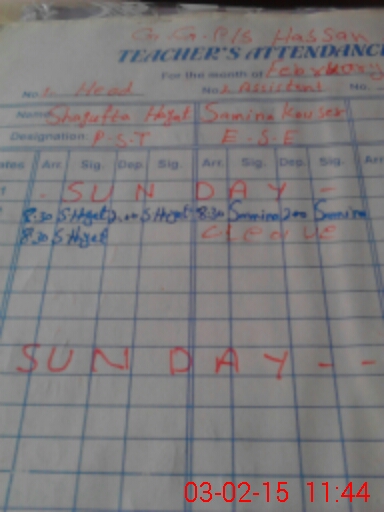 G.G.P/S Hassan
TEACHER'S ATTENDANC
For the month of February
No. 1. Head No. 2. Assistant No.
Name Shagufta Hayat Samina Kauser
Designation: P.S.T E.S.E
ates Arr. Sig. Dep. Sig. Arr. Sig. Dep. Sig. Arr
SUNDAY -
8:30 S.Hayat 2:00 S.Hayat 8:30 Samina 2:00 Samina
8:30 S.Hayat C leave
SUNDAY - -
03-02-15 11:44